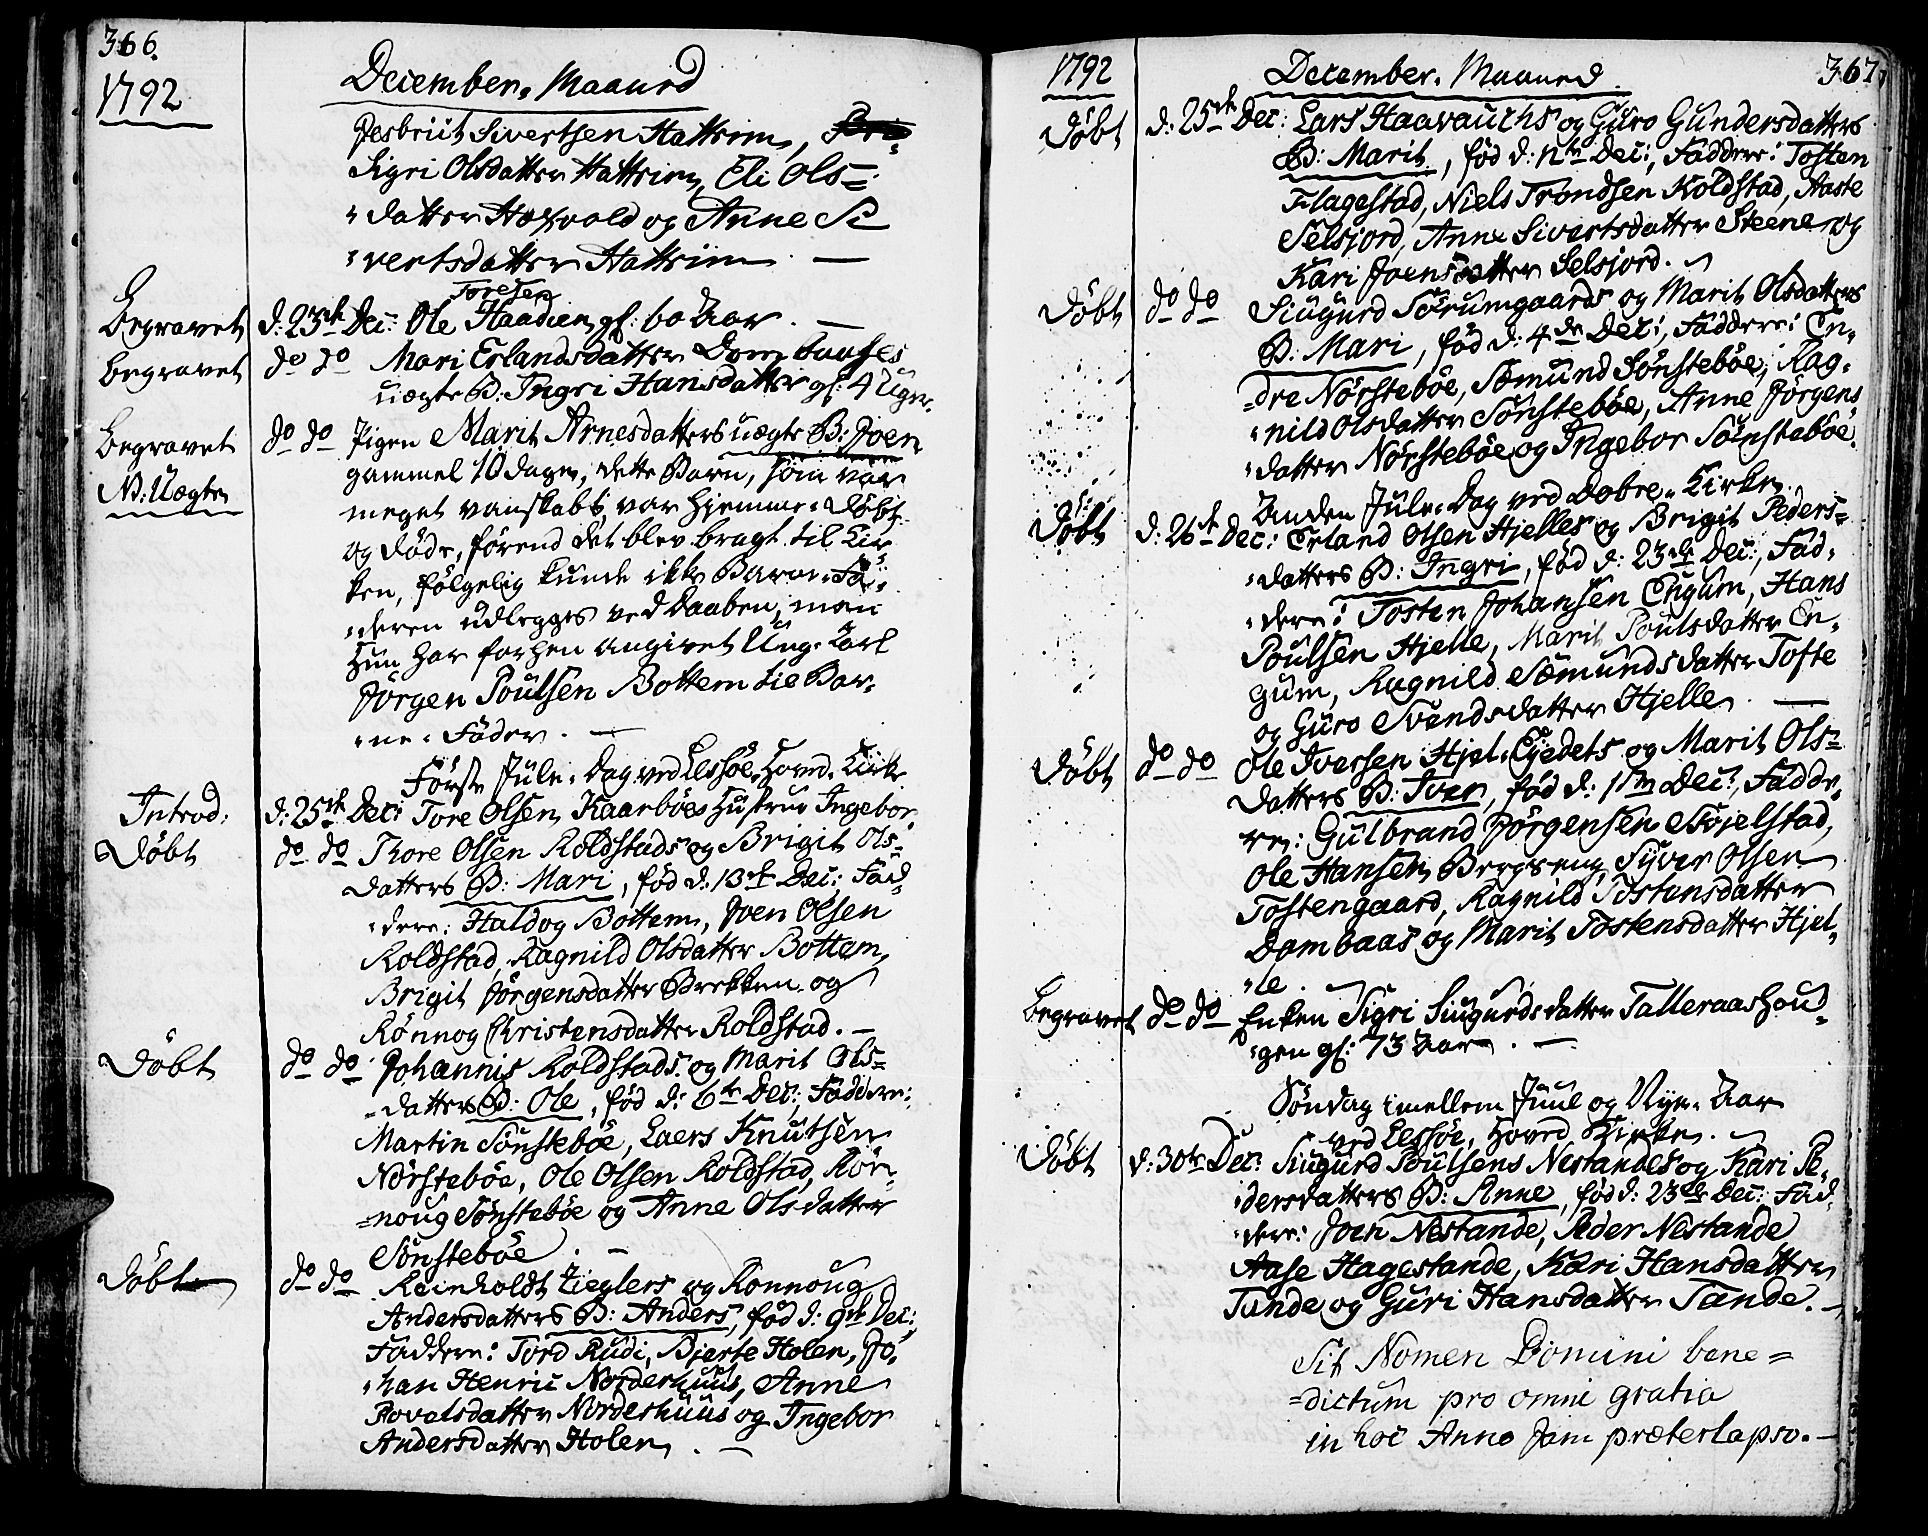 366.
1792
December. Maaned
Jesbriit Sivertsen Hattrim,
Sigri Olsdatter Hattrim, Eli Ols=
datter Horvold og Anne Si
vertsdatter Hattrim. —
Toresen
Begravet d: 23de Dec: Ole Haadien gl: 60 Aar. —
Begravet do do Mari Erlandsdatter Dombaases
uægte B: Ingri Hansdatter gl: 4 Uger.
Begravet do do Pigen Marit Arnesdatters uægte B: Joen
NB: Uægte
gammel 10 Dage, dette Barn, som var
meget vanskabt, var hjemme-døbt
og døde, førend det blev bragt til Kir
ken, følgelig kunde ikke Barne-Fa-
deren udlegges ved Daaben, men
hun har forhen angivet Ung-Karl
Jörgen Poulsen Bottem til Bar-
ne-Fader. —
Første Jule-Dag ved Lessöe Hoved-Kirke
Introd: d: 25de Dec: Tore Olsen Kaarböes Hustrue Ingebor.
Döbt do do Thore Olsen Koldstads og Brigit Ols-
datters B: Mari, föd d: 13de Dec: Fad-
dere: Haldog Bottem, Joen Olsen
Koldstad, Ragnild Olsdatter Bottem,
Brigit Jörgensdatter Brekken og
Rönnog Christensdatter Koldstad. —
Döbt do do Johannis Koldstads og Marit Ols=
datters B: Ole, föd d: 6te Dec:, Faddere:
Martin Sönsteböe, Laers Knutsen
Nörsteböe, Ole Olsen Koldstad, Rön-
noug Sönsteböe og Anne Olsdatter
Sönsteböe. —
Döbt do do Reinholdt Zieglers og Ronnoug
Andersdatters B: Anders, föd d: 9de Dec:,
Faddere: Tord Rudi, Bjerte Holen, Jo-
han Henric Norderhuus, Anne
Povelsdatter Norderhuus og Ingebor
Andersdatter Holen. —
1792
December. Maaned
367
Döbt d: 25de Dec: Lars Haavauchs og Guro Gundersdatters
B: Marit, föd d: 12te Dec:, Faddere: Tosten
Flagestad, Niels Trondsen Koldstad, Aaste
Selsjord, Anne Sivertsdatter Steene og
Kari Joensdatter Selsjord.
Döbt do do Siugurd Sörumgaards og Marit Olsdatters
B: Mari, föd d: 4de Dec:, Faddere: En-
dre Nörsteböe, Sæmund Sönsteböe, Rag-
nild Olsdatter Sönsteböe, Anne Jörgens
datter Nörsteböe og Ingebor Sönsteböe.
Anden Jule-Dag ved Dobre-Kirke.
Döbt d: 26de Dec: Erland Olsen Hjelles og Brigit Peders=
datters B: Ingri, föd d: 23de Dec:, Fad-
dere: Tosten Johansen Engum, Hans
Poulsen Hjelle, Marit Poulsdatter En-
gum, Ragnild Sæmundsdatter Tofte
og Guro Svendsdatter Hjelle. —
Döbt do do Ole Iversen Hjel-Ejedets og Marit Ols=
datters B: Iver, föd d: 17de Dec:, Fadde-
re: Gulbrand Jörgensen Kojelstad,
Ole Hansen Bergseng, Syver Olsen
Tostengaard, Ragnild Tostensdatter
Dombaas og Marit Tostensdatter Hjel-
le.
Begravet do do Enken Sigri Siugurdsdatter Talleraashou-
gen gl: 73 Aar. —
Söndag imellem Juul og Nye-Aar
ved Lessöe, Hoved Kirke.
Döbt d: 30te Dec: Siugurd Poulsens Nestandes og Kari Pe-
dersdatters B: Anne, föd d: 23de Dec: Fad-
dere: Joen Nestande, Peder Nestande
Aase Hagestande, Kari Hansdatter
Tande og Guri Hansdatter Tande. —
Sit Nomen Domini bene=
=dictum pro omni gratia
in hoc Anno Jam præterlapso. —